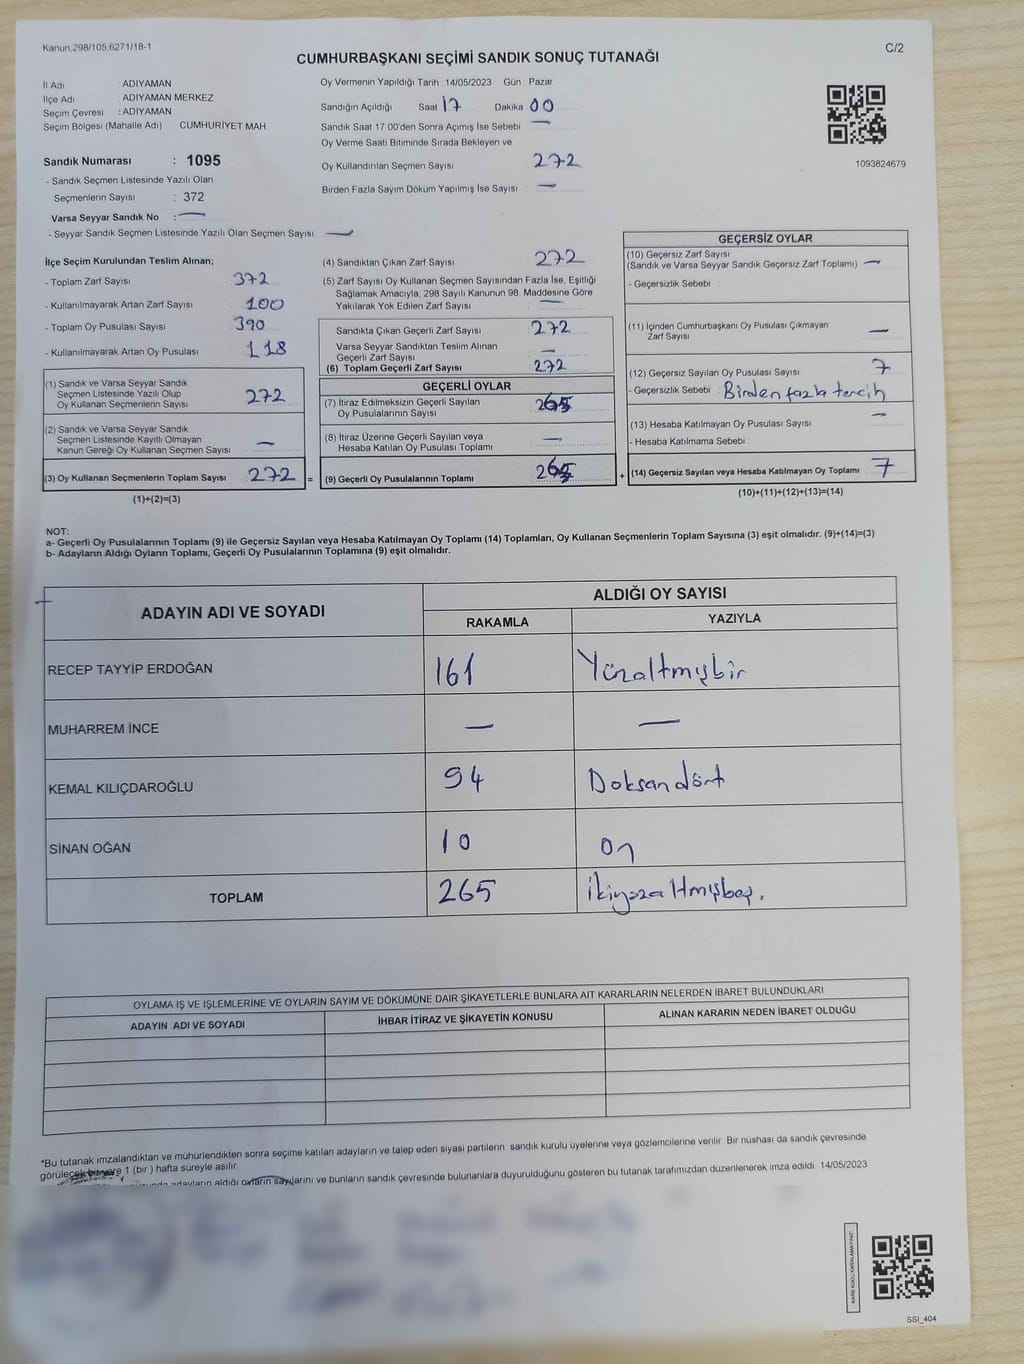 Kanun 298/105,6271/18-1
C/2
CUMHURBAŞKANI SEÇİMİ SANDIK SONUÇ TUTANAĞI
İl Adı : ADIYAMAN
İlçe Adı : ADIYAMAN MERKEZ
Seçim Çevresi : ADIYAMAN
Seçim Bölgesi (Mahalle Adı) CUMHURİYET MAH.
Sandık Numarası : 1095
- Sandık Seçmen Listesinde Yazılı Olan
Seçmenlerin Sayısı : 372
Varsa Seyyar Sandık No : —
- Seyyar Sandık Seçmen Listesinde Yazılı Olan Seçmen Sayısı : —
Oy Vermenin Yapıldığı Tarih : 14/05/2023 Gün : Pazar
Sandığın Açıldığı Saat 17 Dakika 00
Sandık Saat 17:00'den Sonra Açımış İse Sebebi —
Oy Verme Saati Bitiminde Sırada Bekleyen ve
Oy Kullandırılan Seçmen Sayısı 272
Birden Fazla Sayım Döküm Yapılmış İse Sayısı —
1093824679
İlçe Seçim Kurulundan Teslim Alınan;
- Toplam Zarf Sayısı 372
- Kullanılmayarak Artan Zarf Sayısı 100
- Toplam Oy Pusulası Sayısı 390
- Kullanılmayarak Artan Oy Pusulası 118
(1) Sandık ve Varsa Seyyar Sandık
Seçmen Listesinde Yazılı Olup
Oy Kullanan Seçmenlerin Sayısı 272
(2) Sandık ve Varsa Seyyar Sandık
Seçmen Listesinde Kayıtlı Olmayan
Kanun Gereği Oy Kullanan Seçmen Sayısı —
(3) Oy Kullanan Seçmenlerin Toplam Sayısı 272 =
(1)+(2)=(3)
(4) Sandıktan Çıkan Zarf Sayısı 272
(5) Zarf Sayısı Oy Kullanan Seçmen Sayısından Fazla İse, Eşitliği
Sağlamak Amacıyla, 298 Sayılı Kanunun 98. Maddesine Göre
Yakılarak Yok Edilen Zarf Sayısı —
Sandıkta Çıkan Geçerli Zarf Sayısı 272
Varsa Seyyar Sandıktan Teslim Alınan
Geçerli Zarf Sayısı —
(6) Toplam Geçerli Zarf Sayısı 272
GEÇERLİ OYLAR
(7) İtiraz Edilmeksizin Geçerli Sayılan
Oy Pusulalarının Sayısı 265
(8) İtiraz Üzerine Geçerli Sayılan veya
Hesaba Katılan Oy Pusulası Toplamı —
(9) Geçerli Oy Pusulalarının Toplamı 265 +
GEÇERSİZ OYLAR
(10) Geçersiz Zarf Sayısı
(Sandık ve Varsa Seyyar Sandık Geçersiz Zarf Toplamı) —
- Geçersizlik Sebebi :
(11) İçinden Cumhurbaşkanı Oy Pusulası Çıkmayan
Zarf Sayısı —
(12) Geçersiz Sayılan Oy Pusulası Sayısı 7
- Geçersizlik Sebebi : Birden fazla tercih
(13) Hesaba Katılmayan Oy Pusulası Sayısı —
- Hesaba Katılmama Sebebi :
(14) Geçersiz Sayılan veya Hesaba Katılmayan Oy Toplamı 7
(10)+(11)+(12)+(13)=(14)
NOT:
a- Geçerli Oy Pusulalarının Toplamı (9) ile Geçersiz Sayılan veya Hesaba Katılmayan Oy Toplamı (14) Toplamları, Oy Kullanan Seçmenlerin Toplam Sayısına (3) eşit olmalıdır. (9)+(14)=(3)
b- Adayların Aldığı Oyların Toplamı, Geçerli Oy Pusulalarının Toplamına (9) eşit olmalıdır.
ADAYIN ADI VE SOYADI ALDIĞI OY SAYISI
RAKAMLA YAZIYLA
RECEP TAYYİP ERDOĞAN 161 Yüzaltmışbir
MUHARREM İNCE — —
KEMAL KILIÇDAROĞLU 94 Doksandört
SİNAN OĞAN 10 On
TOPLAM 265 İkiyüzaltmışbeş.
OYLAMA İŞ VE İŞLEMLERİNE VE OYLARIN SAYIM VE DÖKÜMÜNE DAİR ŞİKAYETLERLE BUNLARA AİT KARARLARIN NELERDEN İBARET BULUNDUKLARI
ADAYIN ADI VE SOYADI İHBAR İTİRAZ VE ŞİKAYETİN KONUSU ALINAN KARARIN NEDEN İBARET OLDUĞU
*Bu tutanak imzalandıktan ve mühürlendikten sonra seçime katılan adayların ve talep eden siyasi partilerin sandık kurulu üyelerine veya gözlemcilerine verilir. Bir nüshası da sandık çevresinde
görülecek bir yere 1 (bir ) hafta süreyle asılır.
adayların aldığı oyların sayılarını ve bunların sandık çevresinde bulunanlara duyurulduğunu gösteren bu tutanak tarafımızdan düzenlenerek imza edildi. 14/05/2023
KARE KODU KARALAMAYINIZ!
SSI_404